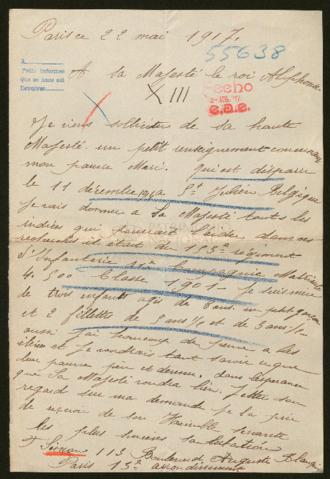 Paris ce 22 mai 1917.
55638
A
Petit Informes
Que se anea esil
Devuelvas
A sa Majesté le roi Alphonse
XIII
Hecho
c.a.e.
Je viens solliciter de sa haute
Majesté un petit renseignement concernant
mon pauvre Mari. qui est disparu
le 11 décembre 1914 St Julien Belgique
je vais donner a Sa Majesté touts les
indices qui pourrait l'aider dans ces
recherches il était du régiment
d'Infanterie Compagnie Matricule
4.500 Classe 1901 Je suis mère
de trois enfants agés de 8 ans un petit garçon
et 2 fillettes de 5 ans ½ et de 3 ans ½
aussi j'ai beaucoup de peine a les
élever et je voudrais tant savoir ce que
leur pauvre père et devenu. dans l'espérance
que Sa Majesté voudra bien jetter son
regard sur ma demande je La prie
de reçevoir de son Humble servante
les plus sincères salutations
Simon 113 Boulevard Auguste Blanqui
Paris 13e arrondissement